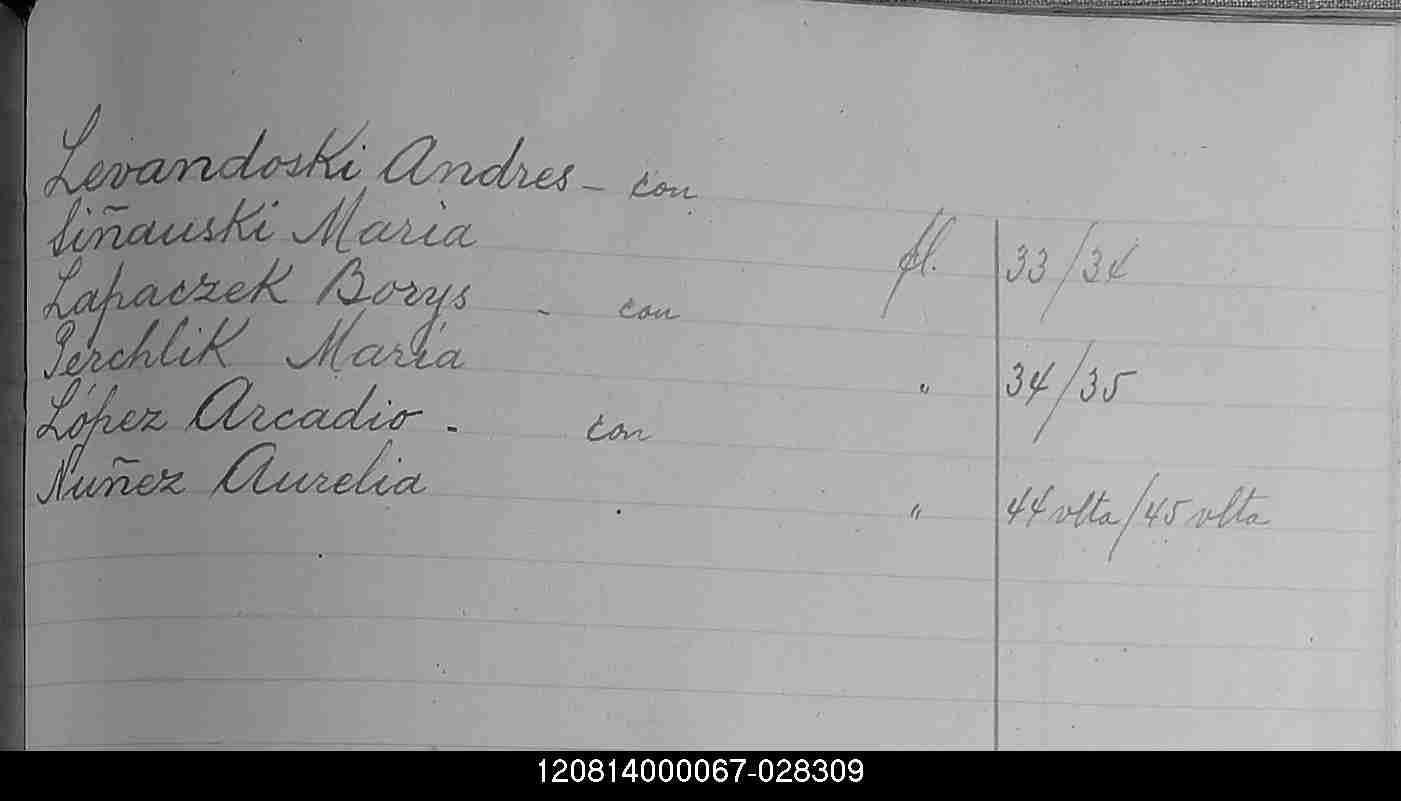 Levandoski Andres - con
Siñauski Maria fl. 33/34
Lapaczek Borys - con
Perchlik María " 34/35
López Arcadio - con
Nuñez Aurelia " 44 vlta/45 vlta
120814000067-028309